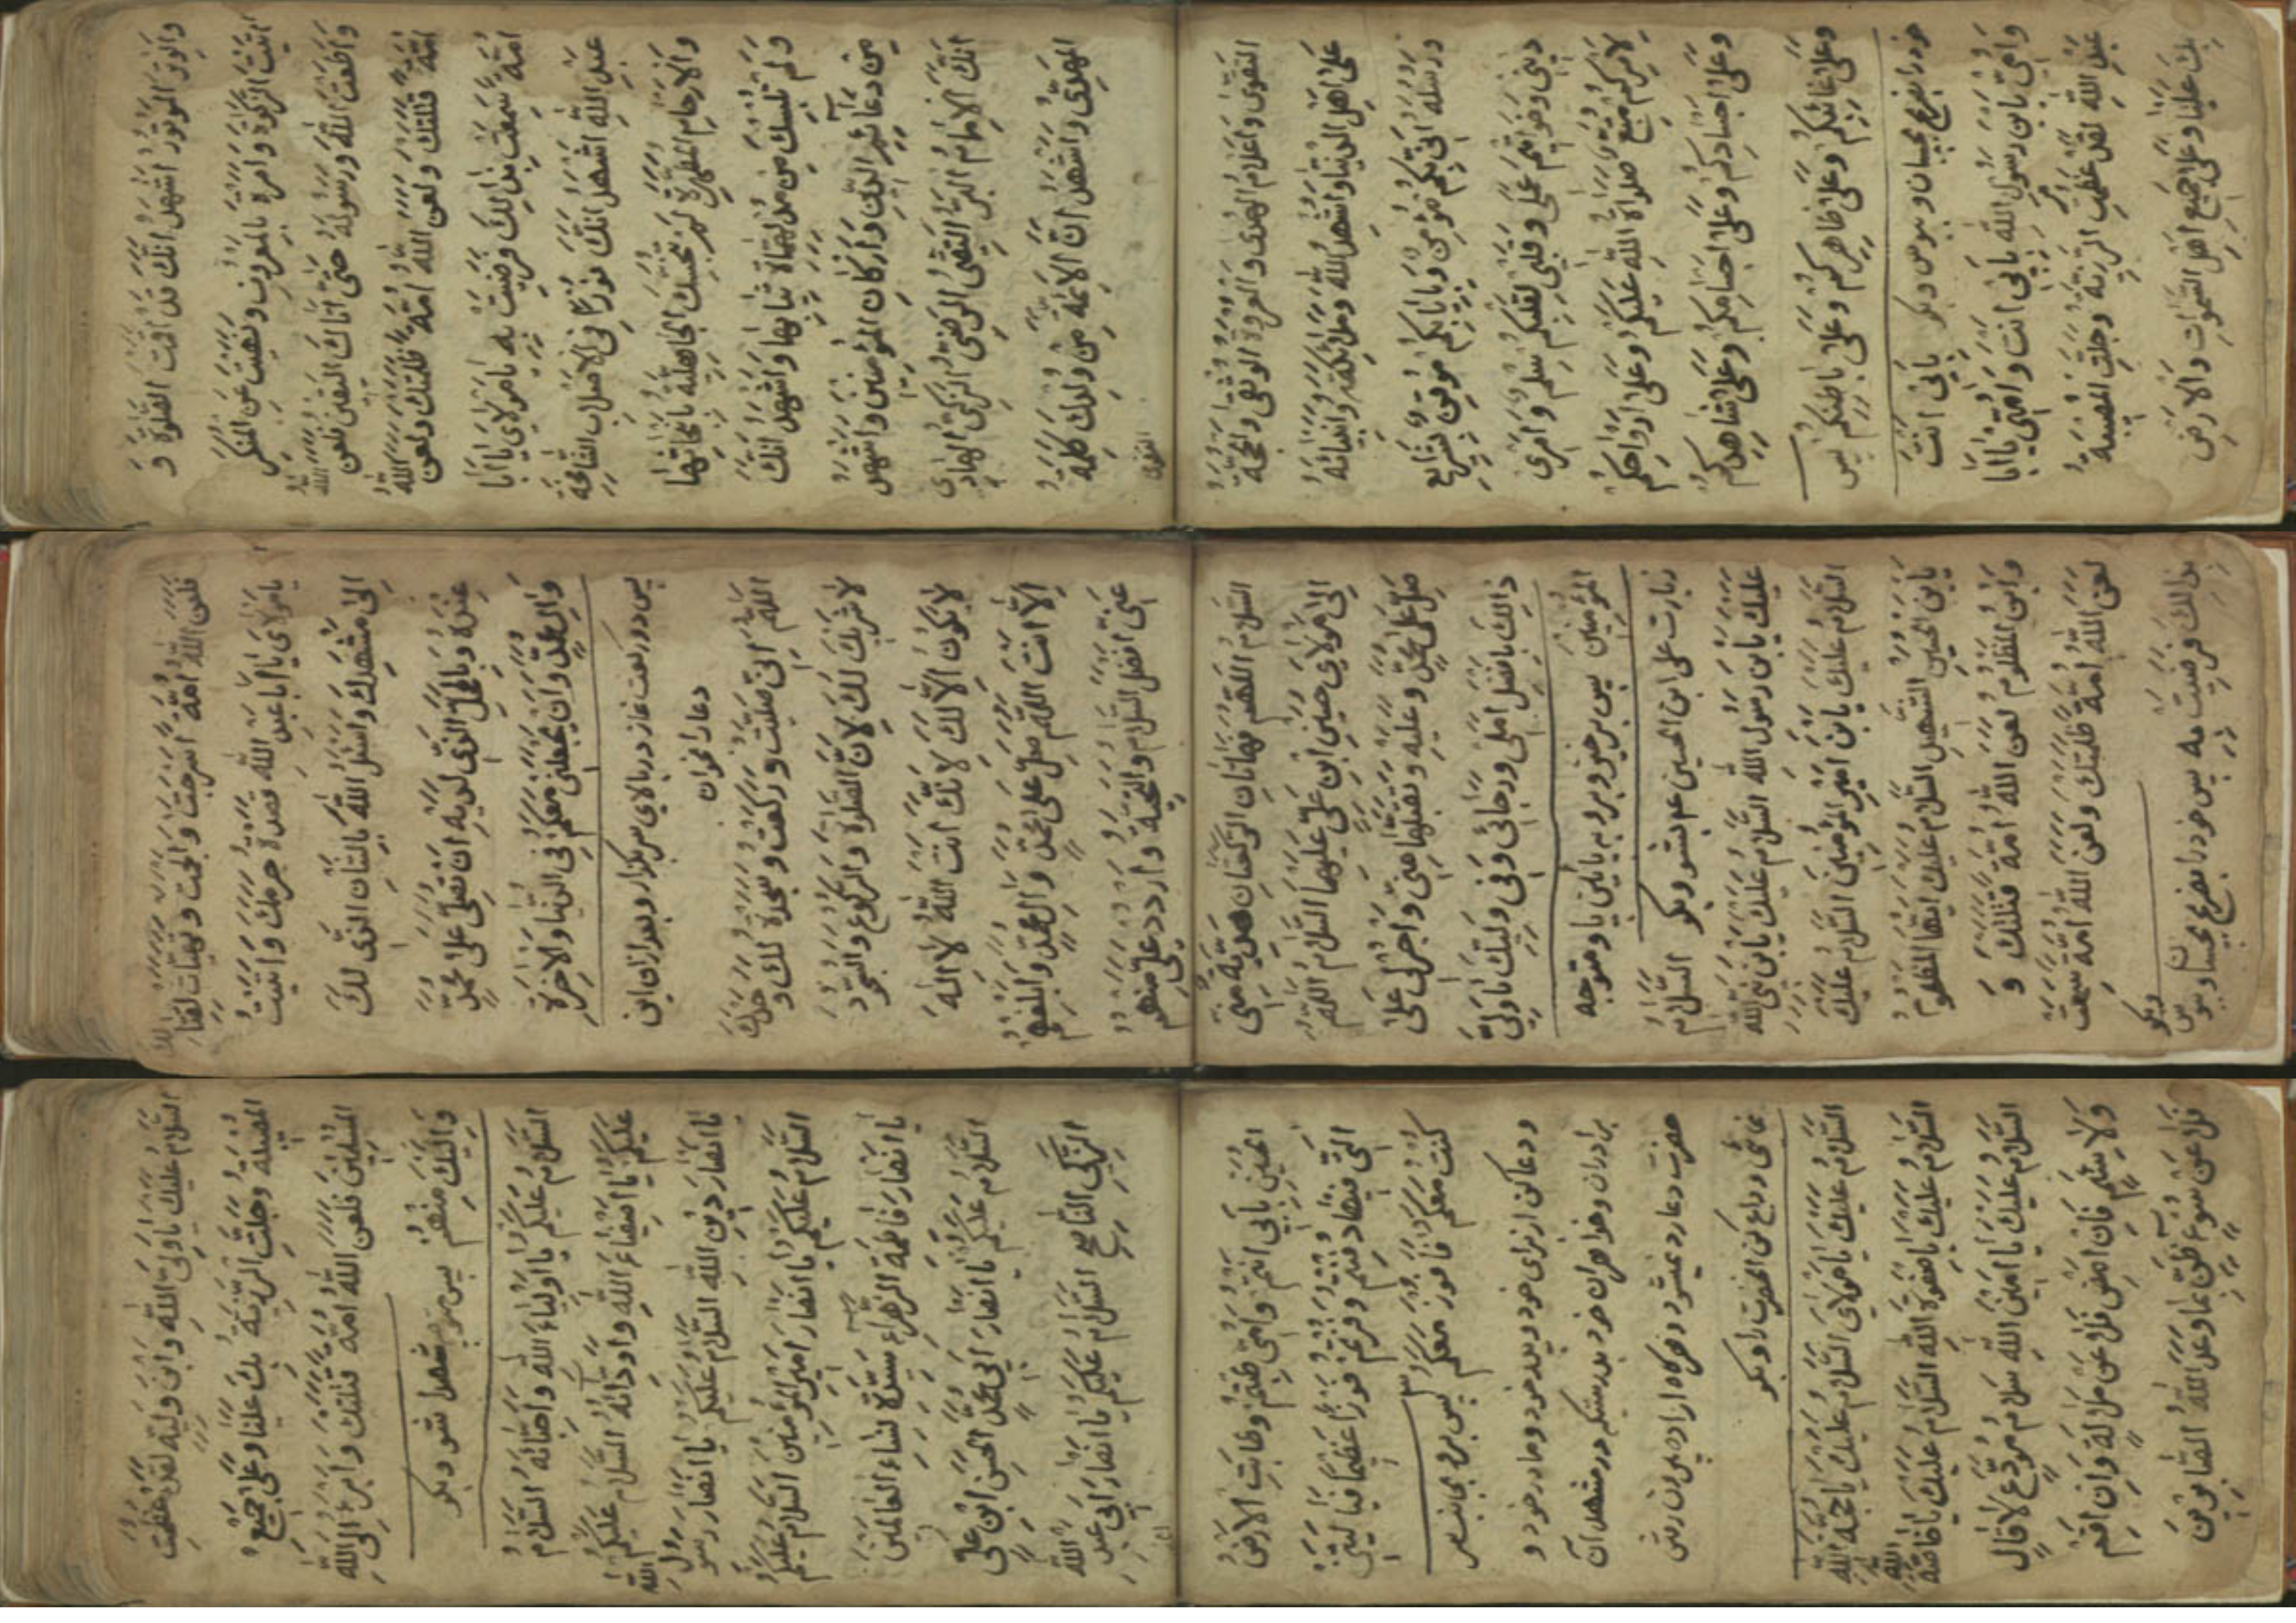 والوتر الموتور اشهد انك قد اقمت الصلوة و
اتيت الزكوة وامرت بالمعروف ونهيت عن المنكر
واطعت الله ورسوله حتى اتاك اليقين فلعن الله
امة قتلتك ولعن الله امة ظلمتك ولعن الله
امة سمعت بذالك فرضيت به يا مولاي يا ابا
عبد الله اشهد انك نورا في الاصلاب الشامخة
والارحام المطهرة لم تنجسك الجاهلية بانجاسها
ولم تلبسك من مدلهمات ثيابها واشهد انك
من دعائم الدين واركان المؤمنين واشهد
انك الامام البر التقي الرضي الزكي الهادي
المهدي واشهد ان الائمة من ولدك كلمة
التقوى
التقوى واعلام الهدى والعروة الوثقى والحجة
على اهل الدنيا واشهد الله وملائكته وانبيائه
ورسله اني بكم مؤمن وبايابكم موقن بشرايع
ديني وخواتيم عملي وقلبي لقلبكم سلم وامري
لامركم متبع صلوات الله عليكم وعلى ارواحكم
وعلى اجسادكم وعلى اجسامكم وعلى شاهدكم
وعلى غائبكم وعلى ظاهركم وعلى باطنكم پس
خود را بضريح بچسبان و ببوس و بكو بابي انت
وامي يا بن رسول الله بابي انت وامي يا ابا
عبد الله لقد عظمت الرزية وجلت المصيبة
بك علينا وعلى جميع اهل السموات والارض
فلعن الله امة اسرجت والجمت وتهيأت لقتالك
يا مولاي يا ابا عبد الله قصدت حرمك واتيت
الى مشهدك واسئل الله بالشان الذي لك
عنده وبالمحل الذي لديه ان تصلي على محمد
وال محمد وان يجعلني معكم في الدنيا والاخرة
پس دو ركعت نماز در بالاى سر بكزار و بعد ازان اين
دعا را بخوان
اللهم اني صليت وركعت وسجدت لك وحدك
لا شريك لك لان الصلوة والركوع والسجود
لا يكون الا لك لانك انت الله لا اله
الا انت اللهم صل على محمد وال محمد وابلغهم
عني افضل السلام والتحية واردد علي منهم
السلام اللهم هاتان الركعتان هدية مني
الى مولاي حسين ابن علي عليهما السلام اللهم
صل على محمد وعليه وتقبلها مني واجرني على
ذالك بافضل املي ورجائي وفي وليك يا ولي
المؤمنين پس برخيز و برو به پايين پا و متوجه
زيارت على ابن الحسين عم بشو و بكو السلام
عليك يا بن رسول الله السلام عليك يا بن نبي الله
السلام عليك يا بن امير المؤمنين السلام عليك
يا بن الحسين الشهيد السلام عليك ايها المظلوم
وابن المظلوم لعن الله امة قتلتك و
لعن الله امة ظلمتك ولعن الله امة سمعت
بذالك فرضيت به پس خود را بضريح بچسبان و ببوس وبكو
السلام عليك يا ولي الله وابن وليه لقد عظمت
المصيبة وجلت الرزية بك علينا وعلى جميع
المسلمين فلعن الله امة قتلتك وابرء الى الله
واليك منهم پس متوجه شهدا شو و بكو
السلام عليكم يا اولياء الله واحبائه السلام
عليكم يا اصفياء الله واودائه السلام عليكم
يا انصار دين الله السلام عليكم يا انصار رسول الله
السلام عليكم يا انصار امير المؤمنين السلام عليكم
يا انصار فاطمة الزهراء سيدة نساء العالمين
السلام عليكم يا انصار ابي محمد الحسن ابن علي
الزكي الناصح السلام عليكم يا انصار ابي عبد الله
الحسين بابي انتم وامي طبتم وطابت الارض
التي فيها دفنتم وفزتم فوزا عظيما فيا ليتني
كنت معكم فافوز معكم پس برو بجانب سر
و دعا كن از براى خود و پدر خود و مادر خود و
برادران و خواهران خود بدرستيكه در مشهد آن
حضرت دعا رد نميشود و هركاه اراده بيرون رفتن
نمائى وداع كن انحضرت را و بكو
السلام عليك يا مولاي السلام عليك يا حجة الله
السلام عليك يا صفوة الله السلام عليك يا خاصة الله
السلام عليك يا امين الله سلام مودع لا قال
ولا سئم فان امض فلا عن ملالة وان اقم
فلا عن سوء ظن بما وعد الله الصابرين